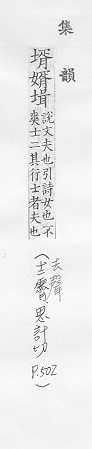 集韻
壻婿
說文夫也引詩女也不
爽士二其行士者夫也
去聲
(十二霽 思計切 P.502)